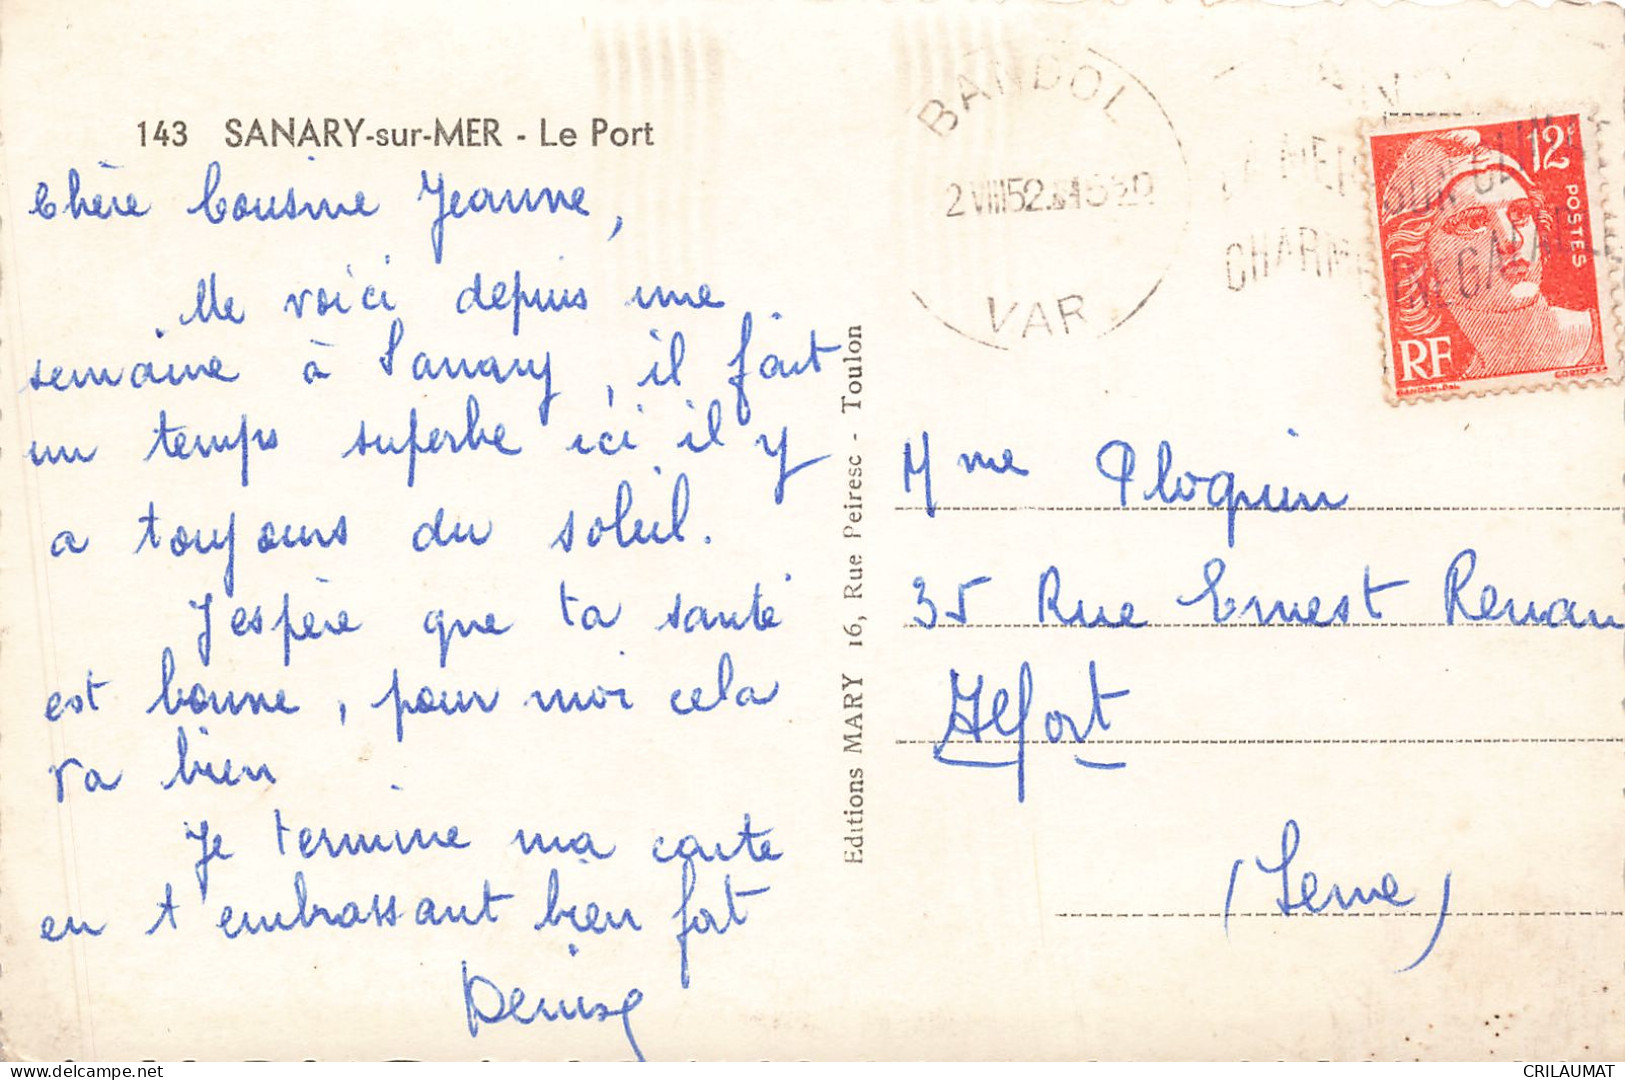 143 SANARY-sur-MER - Le Port
Chère Cousine Jeanne,
Me voici depuis une
semaine à Sanary, il fait
un temps superbe ici il y
a toujours du soleil.
J'espère que ta santé
est bonne, pour moi cela
va bien
Je termine ma carte
en t'embrassant bien fort
Denise
Editions MARY 16, Rue Peiresc - Toulon
BANDOL
2 VIII 52
VAR
LA MER SON CLIMAT
CHARME
12F
POSTES
RF
GANDON-DEL
Mme Ploquin
35 Rue Ernest Renan
Alfort
(Seine)
CRILAUMAT